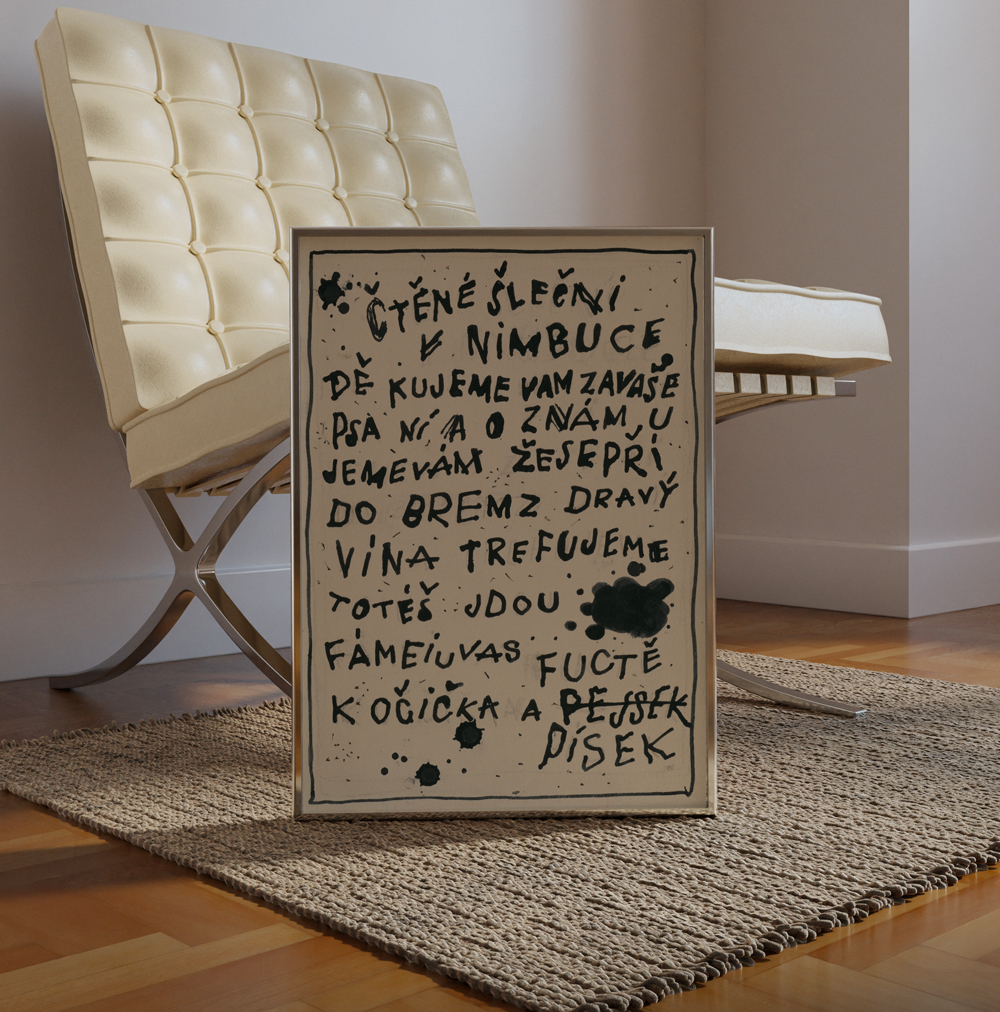 ČTĚNÉ ŠLEČNI
V NIMBUCE
DĚ KUJEME VAM ZAVAŠE
PSA NÍ A O ZNÁM,U
JEMEVÁM ŽESEPŘÍ
DO BREMZ DRAVÝ
VÍNA TREFUJEME
TOTÉŠ JDOU
FÁMEIUVAS FUCTĚ
KOČIČKA A PEJSEK
PÍSEK